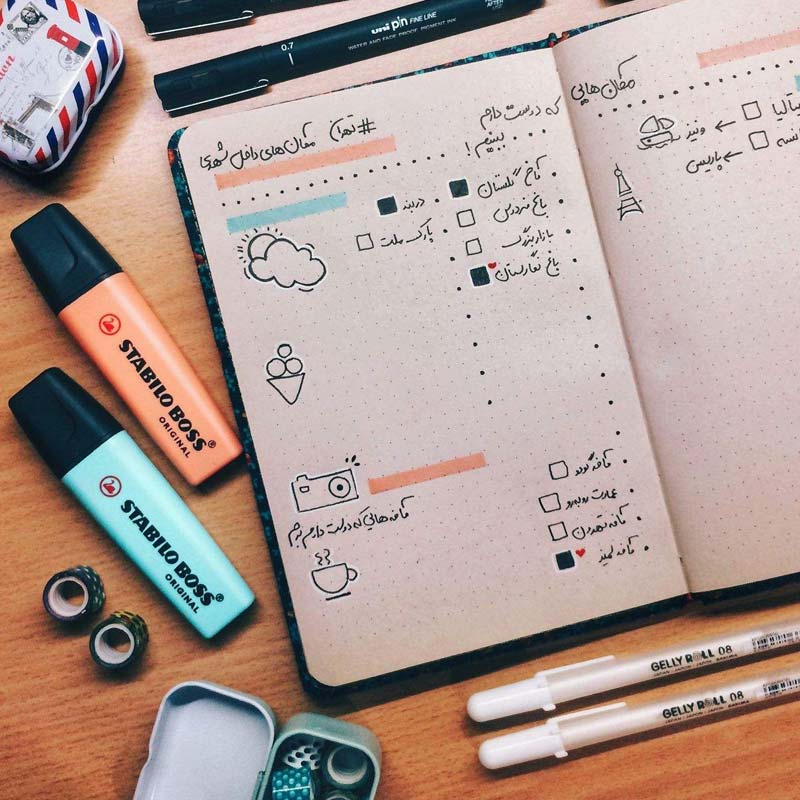 uni pin FINE LINE
WATER AND FADE PROOF, PIGMENT INK
0.7
مکان های داخل شهری
#تهران
که دوست دارم
ببینم!
کاخ گلستان
باغ فردوس
بازار بزرگ
باغ نگارستان
دربند
پارک ملت
کافه هایی که دوست دارم برم
کافه گودو
عمارت روبرو
کافه تهرون
کافه لمیز
مکان هایی
ایتالیا
← ونیز
← پاریس
STABILO BOSS
ORIGINAL
STABILO BOSS
ORIGINAL
GELLY ROLL 08
JAPAN - JAPON - SAKURA
GELLY ROLL 08
JAPAN - JAPON - SAKURA